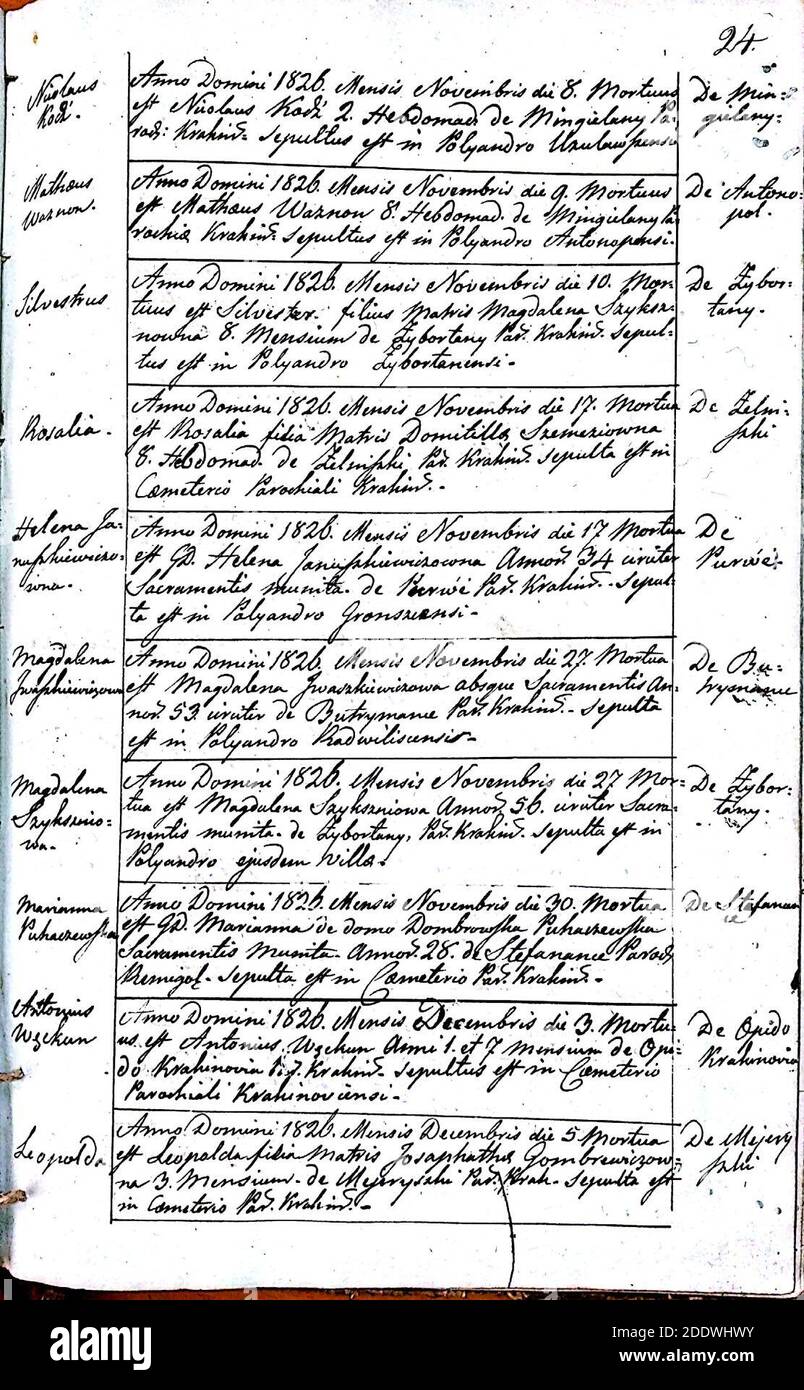 24.
Nicolaus
Kodź.
Anno Domini 1826. Mensis Novembris die 8. Mortuus
est Nicolaus Kodź 2. Hebdomad. de Mingielany Pa-
roch: Krakin̄. Sepultus est in Polyandro
De Min-
gielany-
Mathæus
Waznon.
Anno Domini 1826. Mensis Novembris die 9. Mortuus
est Mathæus Waznon 8. Hebdomad. de Mingielany Pa-
rochiæ Krakin̄. Sepultus est in Polyandro Antonopensi.
De Antono-
pol.
Silvestrus
Anno Domini 1826. Mensis Novembris die 10. Mor-
tuus est Silvester. filius Matris Magdalena Szyksz-
nowna 8. Mensium de Zybortany Par̄. Krakin̄. Sepul-
tus est in Polyandro Zybortanensi.-
De Zybor-
tany.
Rosalia.
Anno Domini 1826. Mensis Novembris die 17. Mortua
est Rosalia filia Matris Domitillæ Szemeziowna
8. Hebdomad. de Zelniszki Par̄. Krakin̄. Sepulta est in
Cœmeterio Parochiali Krakin̄.-
De Zelni-
szki
Helena Ja-
nuszkiewiczo-
wna.
Anno Domini 1826. Mensis Novembris die 17 Mortua
est GD. Helena Januszkiewiczowna Annor̄. 34 circiter
Sacramentis munita. de Purwé Par̄. Krakin̄.- Sepul-
ta est in Polyandro
De
Purwé.
Magdalena
Jwaszkiewiczowa
Anno Domini 1826. Mensis Novembris die 27. Mortua
est Magdalena Jwaszkiewiczowa absque Sacramentis An-
nor̄. 53. circiter de Butrymance Par̄. Krakin̄.- Sepulta
est in Polyandro Radwiliscensi-
De Bu-
trymance
Magdalena
Szykszniо-
wa.
Anno Domini 1826. Mensis Novembris die 27 Mor-
tua est Magdalena Szykszniowa Annor̄ 56. circiter Sacra-
mentis munita. de Zybortany, Par̄. Krakin̄. Sepulta est in
Polyandro ejusdem Villæ.
De Zybor-
tany.
Marianna
Puhaczewska
Anno Domini 1826. Mensis Novembris die 30. Mortua
est GD. Marianna de domo Dombrowska Puhaczewska
Sacramentis Munita. Annor̄. 28. de Stefanance Paroch
Remigol- Sepulta est in Cœmeterio Par̄. Krakin̄.-
De Stefanan
ce
Antonius
Węckun
Anno Domini 1826. Mensis Decembris die 3. Mortu-
us est Antonius Węckun Anni 1. et 7 mensium de Opi-
do Krakinovia Par̄. Krakin̄. Sepultus est in Cœmeterio
Parochiali Krakinoviensi.-
De Opido
Krakinovia
Leopolda
Anno Domini 1826. Mensis Decembris die 5 Mortua
est Leopolda filia Matris Josaphathæ Gombrewiczow-
na 3. Mensium. de Mejeryszki Par̄. Krak- Sepulta est
in Cœmeterio Par̄. Krakin̄.-
De Mejery
szki
alamy
Image ID: 2DDWHWY
www.alamy.com